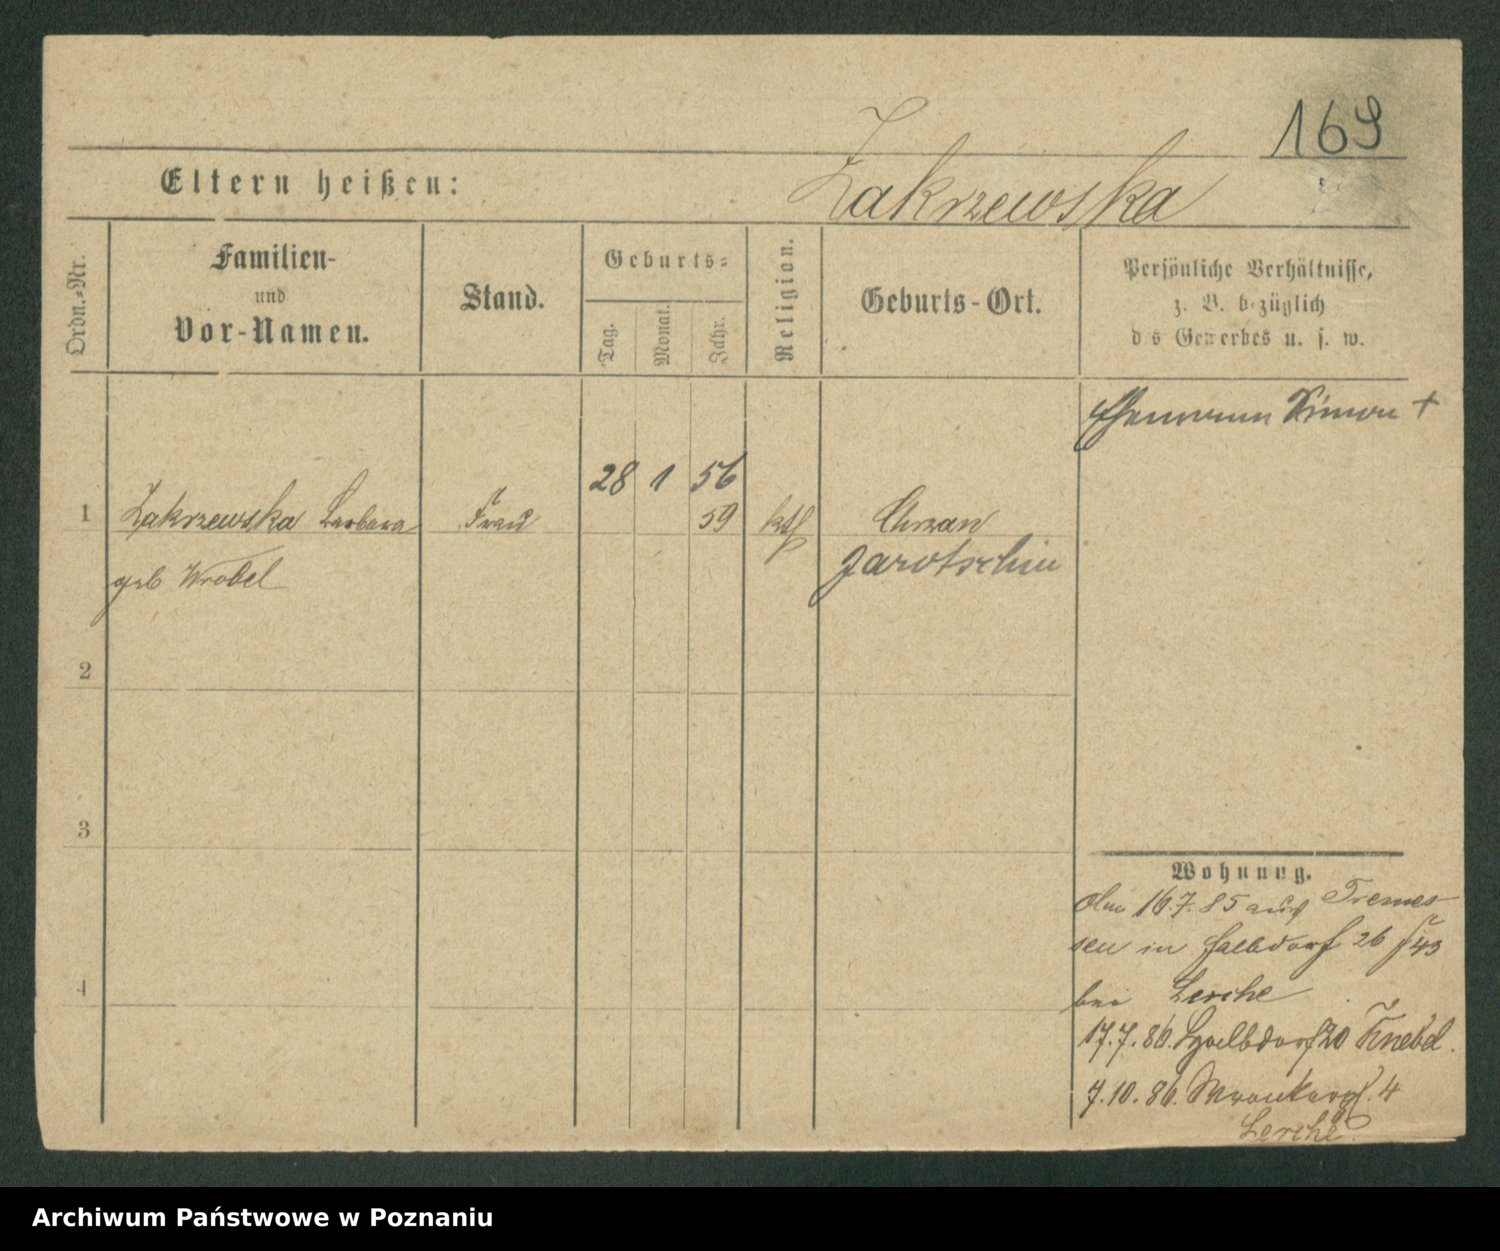 169
Eltern heißen:
Zakrzewska
Ordn.=Nr.
Familien-
und
Vor-Namen.
Stand.
Geburts=
Tag.
Monat.
Jahr.
Religion.
Geburts-Ort.
Persönliche Verhältnisse,
z. B. bezüglich
d s Gewerbes u. s. w.
Ehemann Simon +
28 1 56
1 Zakrzewska Barbara Frau 59 kth Chrzan
geb Wrobel Jarotschin
2
3
4
Wohnung.
16.7.85 aus Tremes-
sen in Halbdorf 26
bei Lerche
17.7.86. Halbdorf 20 Knebel.
7.10.86. Wronkerpl. 4
Lerche
Archiwum Państwowe w Poznaniu